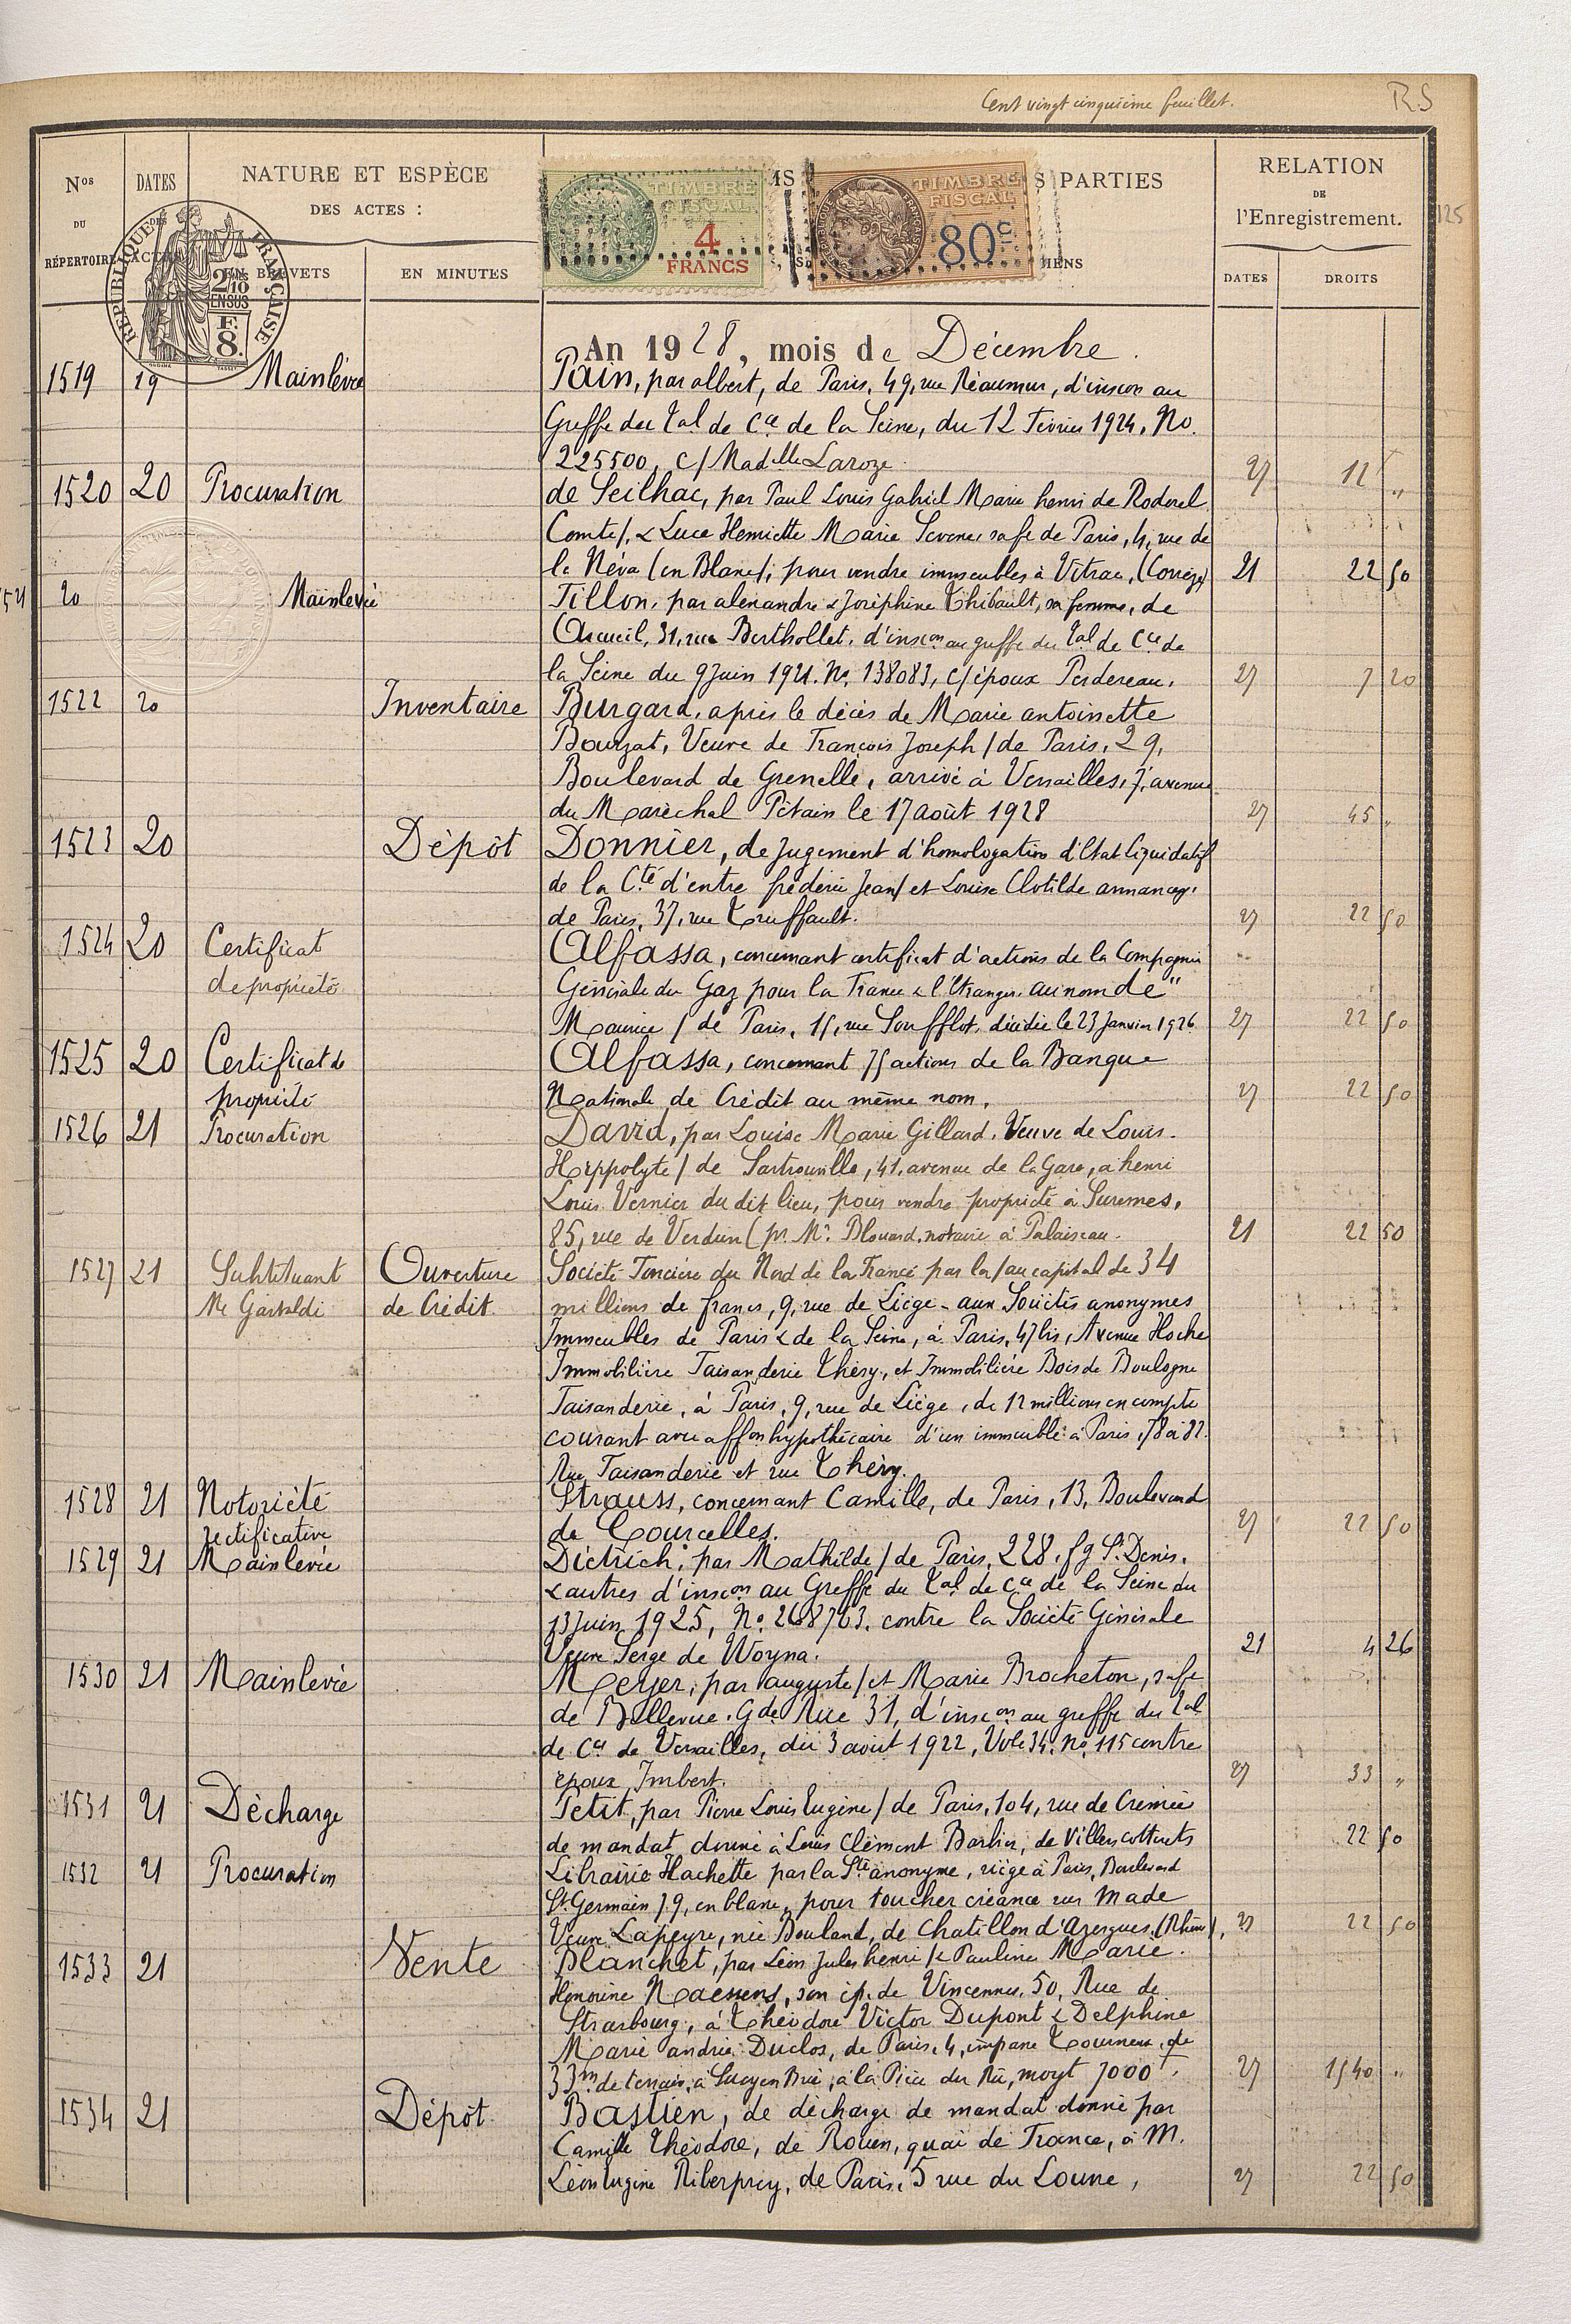 Cent vingt cinquième feuillet.
RS
125
Nos DU RÉPERTOIRE
DATES DES ACTES
NATURE ET ESPÈCE
DES ACTES :
EN BREVETS
EN MINUTES
PARTIES
RELATION
DE
l'Enregistrement.
DATES
DROITS
RÉPUBLIQUE FRANÇAISE
2/10 EN SUS
F.
8.
TIMBRE FISCAL
4 FRANCS
TIMBRE FISCAL
80c
An 1928, mois de Décembre.
1519 19 Mainlevée Pain, par albert, de Paris, 49, rue Réaumur, d'inscon au
Greffe du Tal de Cce de la Seine, du 12 Février 1924, No.
225500, c/ Madelle Laroze. 27 12 "
1520 20 Procuration de Seilhac, par Paul Louis Gabriel Marie henri de Roderel
Comte/, & Luce Henriette Marie sa fe de Paris, 4, rue de
la Néva (en Blanc), pour vendre immeubles à Vitrac, (Corrèze) 21 22 50
1521 20 Mainlevée Tillon, par alexandre & Joséphine Thibault, sa femme, de
Arcueil, 31, rue Berthollet, d'inscon au greffe du Tal de Cce de
la Seine du 9 Juin 1921. No. 138083, c/ époux Perdereau. 27 7 20
1522 20 Inventaire Burgard, après le décès de Marie antoinette
Bourzat, Veuve de François Joseph / de Paris, 29,
Boulevard de Grenelle, arrivé à Versailles, 7, avenue
du Maréchal Pétain le 17 août 1928 27 45 "
1523 20 Dépôt Donnier, de Jugement d'homologation d'Etat liquidatif
de la Cté d'entre frédéric Jean/ et Louise Clotilde
de Paris, 37, rue Truffault. 27 22 50
1524 20 Certificat Alfassa, concernant certificat d'actions de la Compagnie
de propriété Générale du Gaz pour la France & l'Etranger, au nom de "
Maurice / de Paris, 15, rue Soufflot, décédé le 23 Janvier 1926 27 22 50
1525 20 Certificat de Alfassa, concernant 75 actions de la Banque
propriété Nationale de Crédit au même nom. 27 22 50
1526 21 Procuration David, par Louise Marie Gillard, Veuve de Louis
Hippolyte / de Sartrouville, 41, avenue de la Gare, a henri
Louis Vernier du dit lieu, pour vendre propriété à Suresnes,
85, rue de Verdun (pr. Me. Blouard, notaire à Palaiseau. 21 22 50
1527 21 Substituant Ouverture Société Foncière du Nord de la France par la / au capital de 34
Me Gastaldi de Crédit. millions de francs, 9, rue de Liège - aux Sociétés anonymes
Immeubles de Paris & de la Seine, à Paris, 47 bis, Avenue Hoche
Immobilière Faisanderie Théry, et Immobilière Bois de Boulogne
Faisanderie, à Paris, 9, rue de Liège, de 12 millions en compte
courant avec affon hypothécaire d'un immeuble à Paris, 78 à 82
Rue Faisanderie et rue Théry.
1528 21 Notoriété Strauss, concernant Camille, de Paris, 13, Boulevard
rectificative de Courcelles. 27 22 50
1529 21 Mainlevée Dietrich, par Mathilde / de Paris, 228, fg St. Denis,
& autres d'inscon au Greffe du Tal de Cce de la Seine du
13 Juin 1925, No. 268763, contre la Société Générale
Veuve Serge de Woyna. 21 4 26
1530 21 Mainlevée Meyer, par auguste / et Marie Brocheton, sa fe
de Bellevue, Gde Rue 31, d'inscon au greffe du Tal
de Cce de Versailles, du 3 août 1922, Vole 34, No. 115 contre
époux Imbert. 27 33 "
1531 21 Décharge Petit, par Pierre Louis Eugène / de Paris, 104, rue de Crimée
de mandat donné à Louis Clément Barbier, de Villers cotterets 22 50
1532 21 Procuration Librairie Hachette par la Sté anonyme, siège à Paris, Boulevard
St. Germain 79, en blanc, pour toucher créance sur Made
Veuve Lapeyre, née Bouland, de Chatillon d'Azergues (Rhône), 27 22 50
1533 21 Vente Blanchet, par Léon Jules henri / & Pauline Marie
Honorine Naessens, son ép. de Vincennes, 50, Rue de
Strasbourg, à Théodore Victor Dupont & Delphine
Marie andrée Duclos, de Paris, 4, impasse Tourneux, de
33m de terrain, à Sucy en Brie, à la Pièce du Rû, moyt 7000 f. 27 1540 "
1534 21 Dépôt Bastien, de décharge de mandat donné par
Camille Théodore, de Rouen, quai de France, à M.
Léon Eugène Riberprey, de Paris, 5 rue du Louvre, 27 22 50